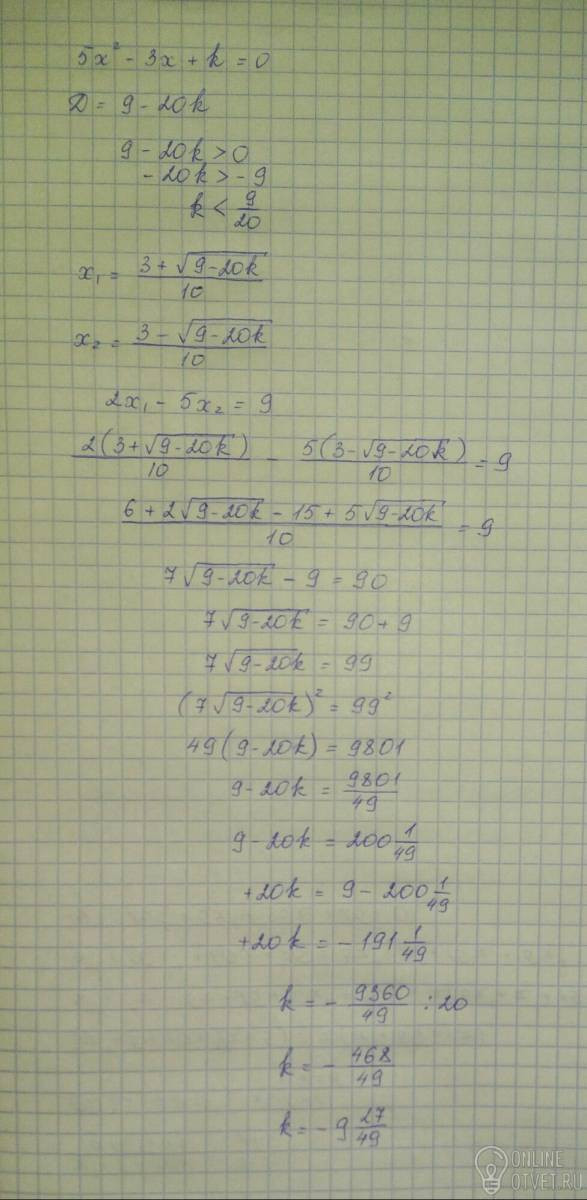 5x² - 3x + k = 0
D = 9 - 20k
9 - 20k > 0
- 20k > - 9
k < 9/20
x₁ = (3 + √(9-20k))/10
x₂ = (3 - √(9-20k))/10
2x₁ - 5x₂ = 9
2(3+√(9-20k))/10 - 5(3-√(9-20k))/10 = 9
(6 + 2√(9-20k) - 15 + 5√(9-20k))/10 = 9
7√(9-20k) - 9 = 90
7√(9-20k) = 90 + 9
7√(9-20k) = 99
(7√(9-20k))² = 99²
49(9-20k) = 9801
9-20k = 9801/49
9-20k = 200 1/49
+20k = 9 - 200 1/49
+20k = - 191 1/49
k = - 9360/49 : 20
k = - 468/49
k = - 9 27/49
ONLINE
OTVET.RU